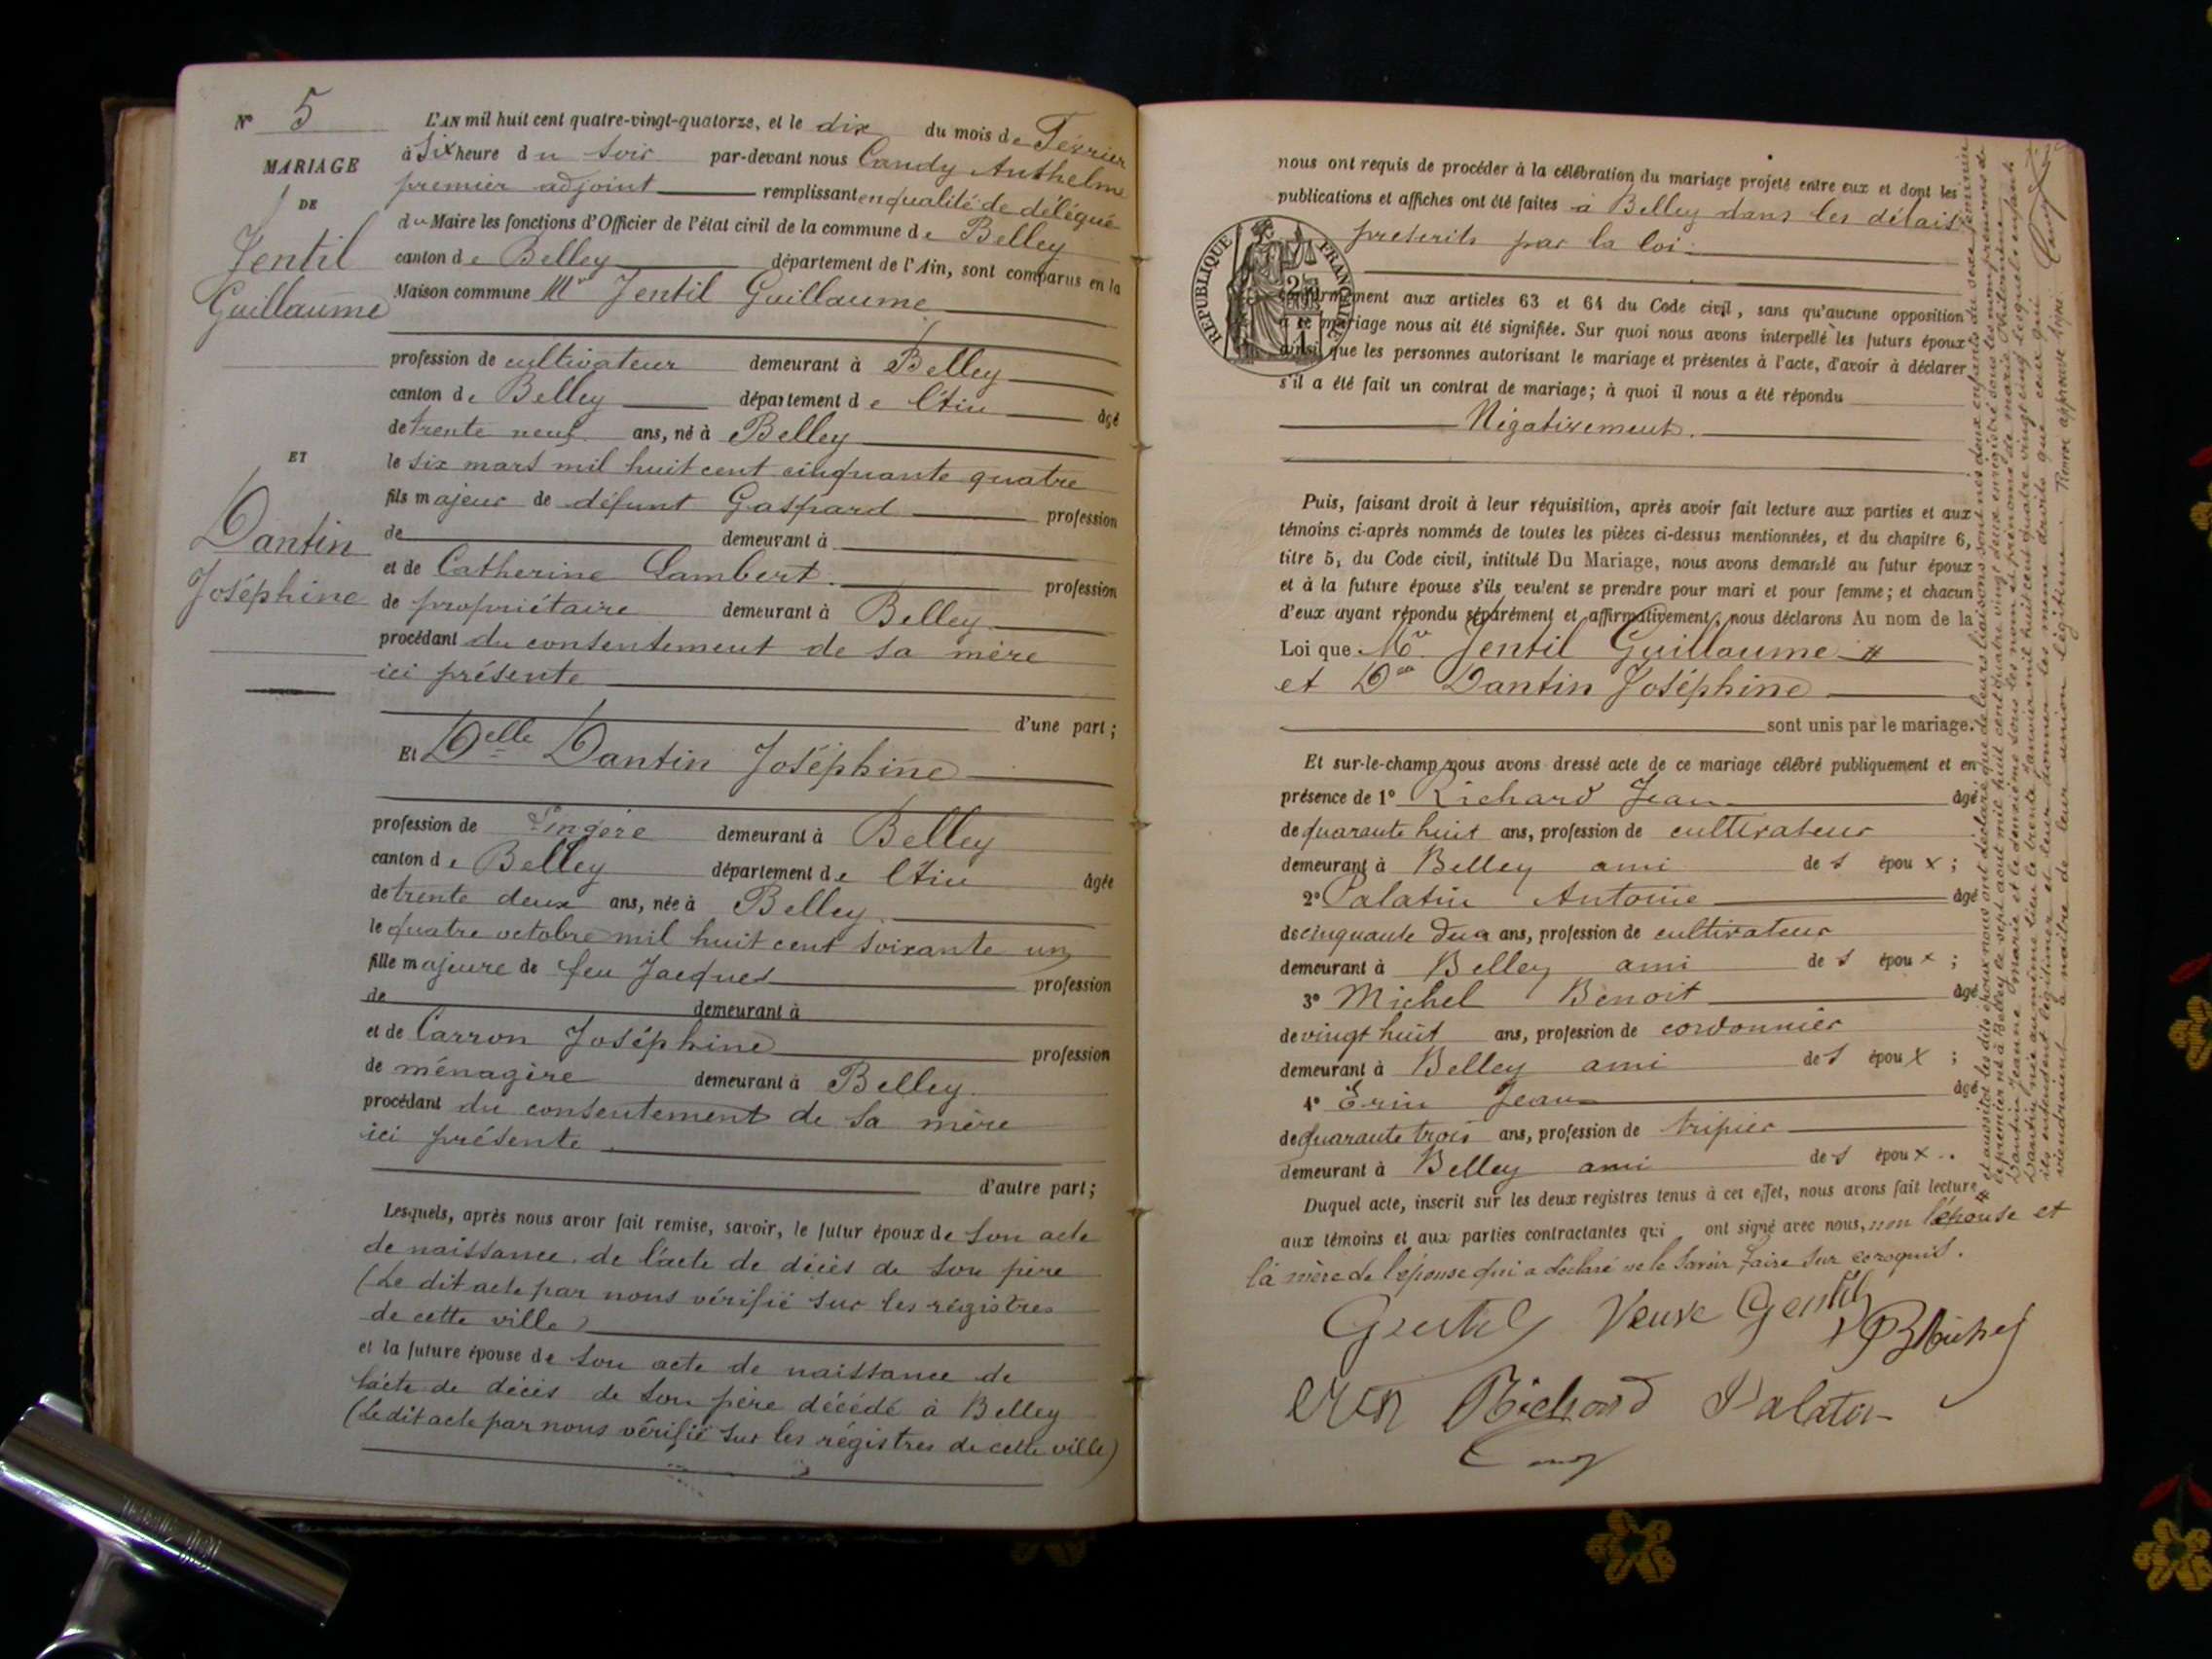 N° 5
MARIAGE
DE
Jentil
Guillaume
ET
Dantin
Joséphine
L'AN mil huit cent quatre-vingt-quatorze, et le dix du mois de Février
à Six heure du soir par-devant nous Candy Anthelme
premier adjoint remplissant en qualité de délégué
du Maire les fonctions d'Officier de l'état civil de la commune de Belley
canton de Belley département de l'Ain, sont comparus en la
Maison commune Mr Jentil Guillaume
profession de cultivateur demeurant à Belley
canton de Belley département de l'Ain âgé
de trente neuf ans, né à Belley
le six mars mil huit cent cinquante quatre
fils majeur de défunt Gaspard profession
de demeurant à
et de Catherine Lambert profession
de propriétaire demeurant à Belley
procédant du consentement de sa mère
ici présente
d'une part;
Et Delle Dantin Joséphine
profession de Lingère demeurant à Belley
canton de Belley département de l'Ain âgée
de trente deux ans, née à Belley
le quatre octobre mil huit cent soixante un
fille majeure de feu Jacques profession
de demeurant à
et de Carron Joséphine profession
de ménagère demeurant à Belley
procédant du consentement de sa mère
ici présente
d'autre part;
Lesquels, après nous avoir fait remise, savoir, le futur époux de son acte
de naissance, de l'acte de décès de son père
(Le dit acte par nous vérifié sur les régistres
de cette ville)
et la future épouse de son acte de naissance de
l'acte de décès de son père décédé à Belley
(Le dit acte par nous vérifié sur les régistres de cette ville)
nous ont requis de procéder à la célébration du mariage projeté entre eux et dont les
publications et affiches ont été faites à Belley dans les délais
prescrits par la loi
RÉPUBLIQUE FRANÇAISE
conformément aux articles 63 et 64 du Code civil, sans qu'aucune opposition
à ce mariage nous ait été signifiée. Sur quoi nous avons interpellé les futurs époux
ainsi que les personnes autorisant le mariage et présentes à l'acte, d'avoir à déclarer
s'il a été fait un contrat de mariage; à quoi il nous a été répondu
Négativement.
Puis, faisant droit à leur réquisition, après avoir fait lecture aux parties et aux
témoins ci-après nommés de toutes les pièces ci-dessus mentionnées, et du chapitre 6,
titre 5, du Code civil, intitulé Du Mariage, nous avons demandé au futur époux
et à la future épouse s'ils veulent se prendre pour mari et pour femme; et chacun
d'eux ayant répondu séparément et affirmativement, nous déclarons Au nom de la
Loi que Mr. Jentil Guillaume #
et Dlle Dantin Joséphine
sont unis par le mariage.
Et sur-le-champ nous avons dressé acte de ce mariage célébré publiquement et en
présence de 1° Richard Jean âgé
de quarante huit ans, profession de cultivateur
demeurant à Belley ami de s époux;
2° Palatin Antoine âgé
de cinquante deux ans, profession de cultivateur
demeurant à Belley ami de s époux;
3° Michel Benoit âgé
de vingt huit ans, profession de cordonnier
demeurant à Belley ami de s époux;
4° Erin Jean âgé
de quarante trois ans, profession de tripier
demeurant à Belley ami de s époux.
Duquel acte, inscrit sur les deux registres tenus à cet effet, nous avons fait lecture
aux témoins et aux parties contractantes qui ont signé avec nous, non l'épouse et
la mère de l'épouse qui a déclaré ne le savoir faire sur ce requis.
Gentil Veuve Gentil B Michel
erin Richard Palatin
Candy
# et aussitôt les dits époux nous ont déclaré que de leurs liaisons sont nés deux enfants du sexe féminin
le premier né à Belley le sept août mil huit cent quatre vingt deux enregistré sous les nom prénoms de
Dantin Jeanne Marie et le deuxième sous les nom et prénoms de marie Antoinine
Dantin née au même lieu le trente Janvier mil huit cent quatre vingt cinq lesquels enfants
ils entendent légitimer et leur donner les même droits que ceux qui
viendraient à naître de leur union légitime. Renvoi approuvé signé. Candy